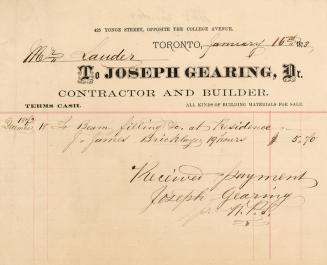 425 YONGE STREET, OPPOSITE THE COLLEGE AVENUE.
TORONTO, January 16th 1873
Mrs Lauder
To JOSEPH GEARING, Dr.
CONTRACTOR AND BUILDER.
TERMS CASH. ALL KINDS OF BUILDING MATERIALS FOR SALE.
To Beam filling &c. at Residence
James Bricklayer 19 hours $ 5.70
Received payment
Joseph Gearing